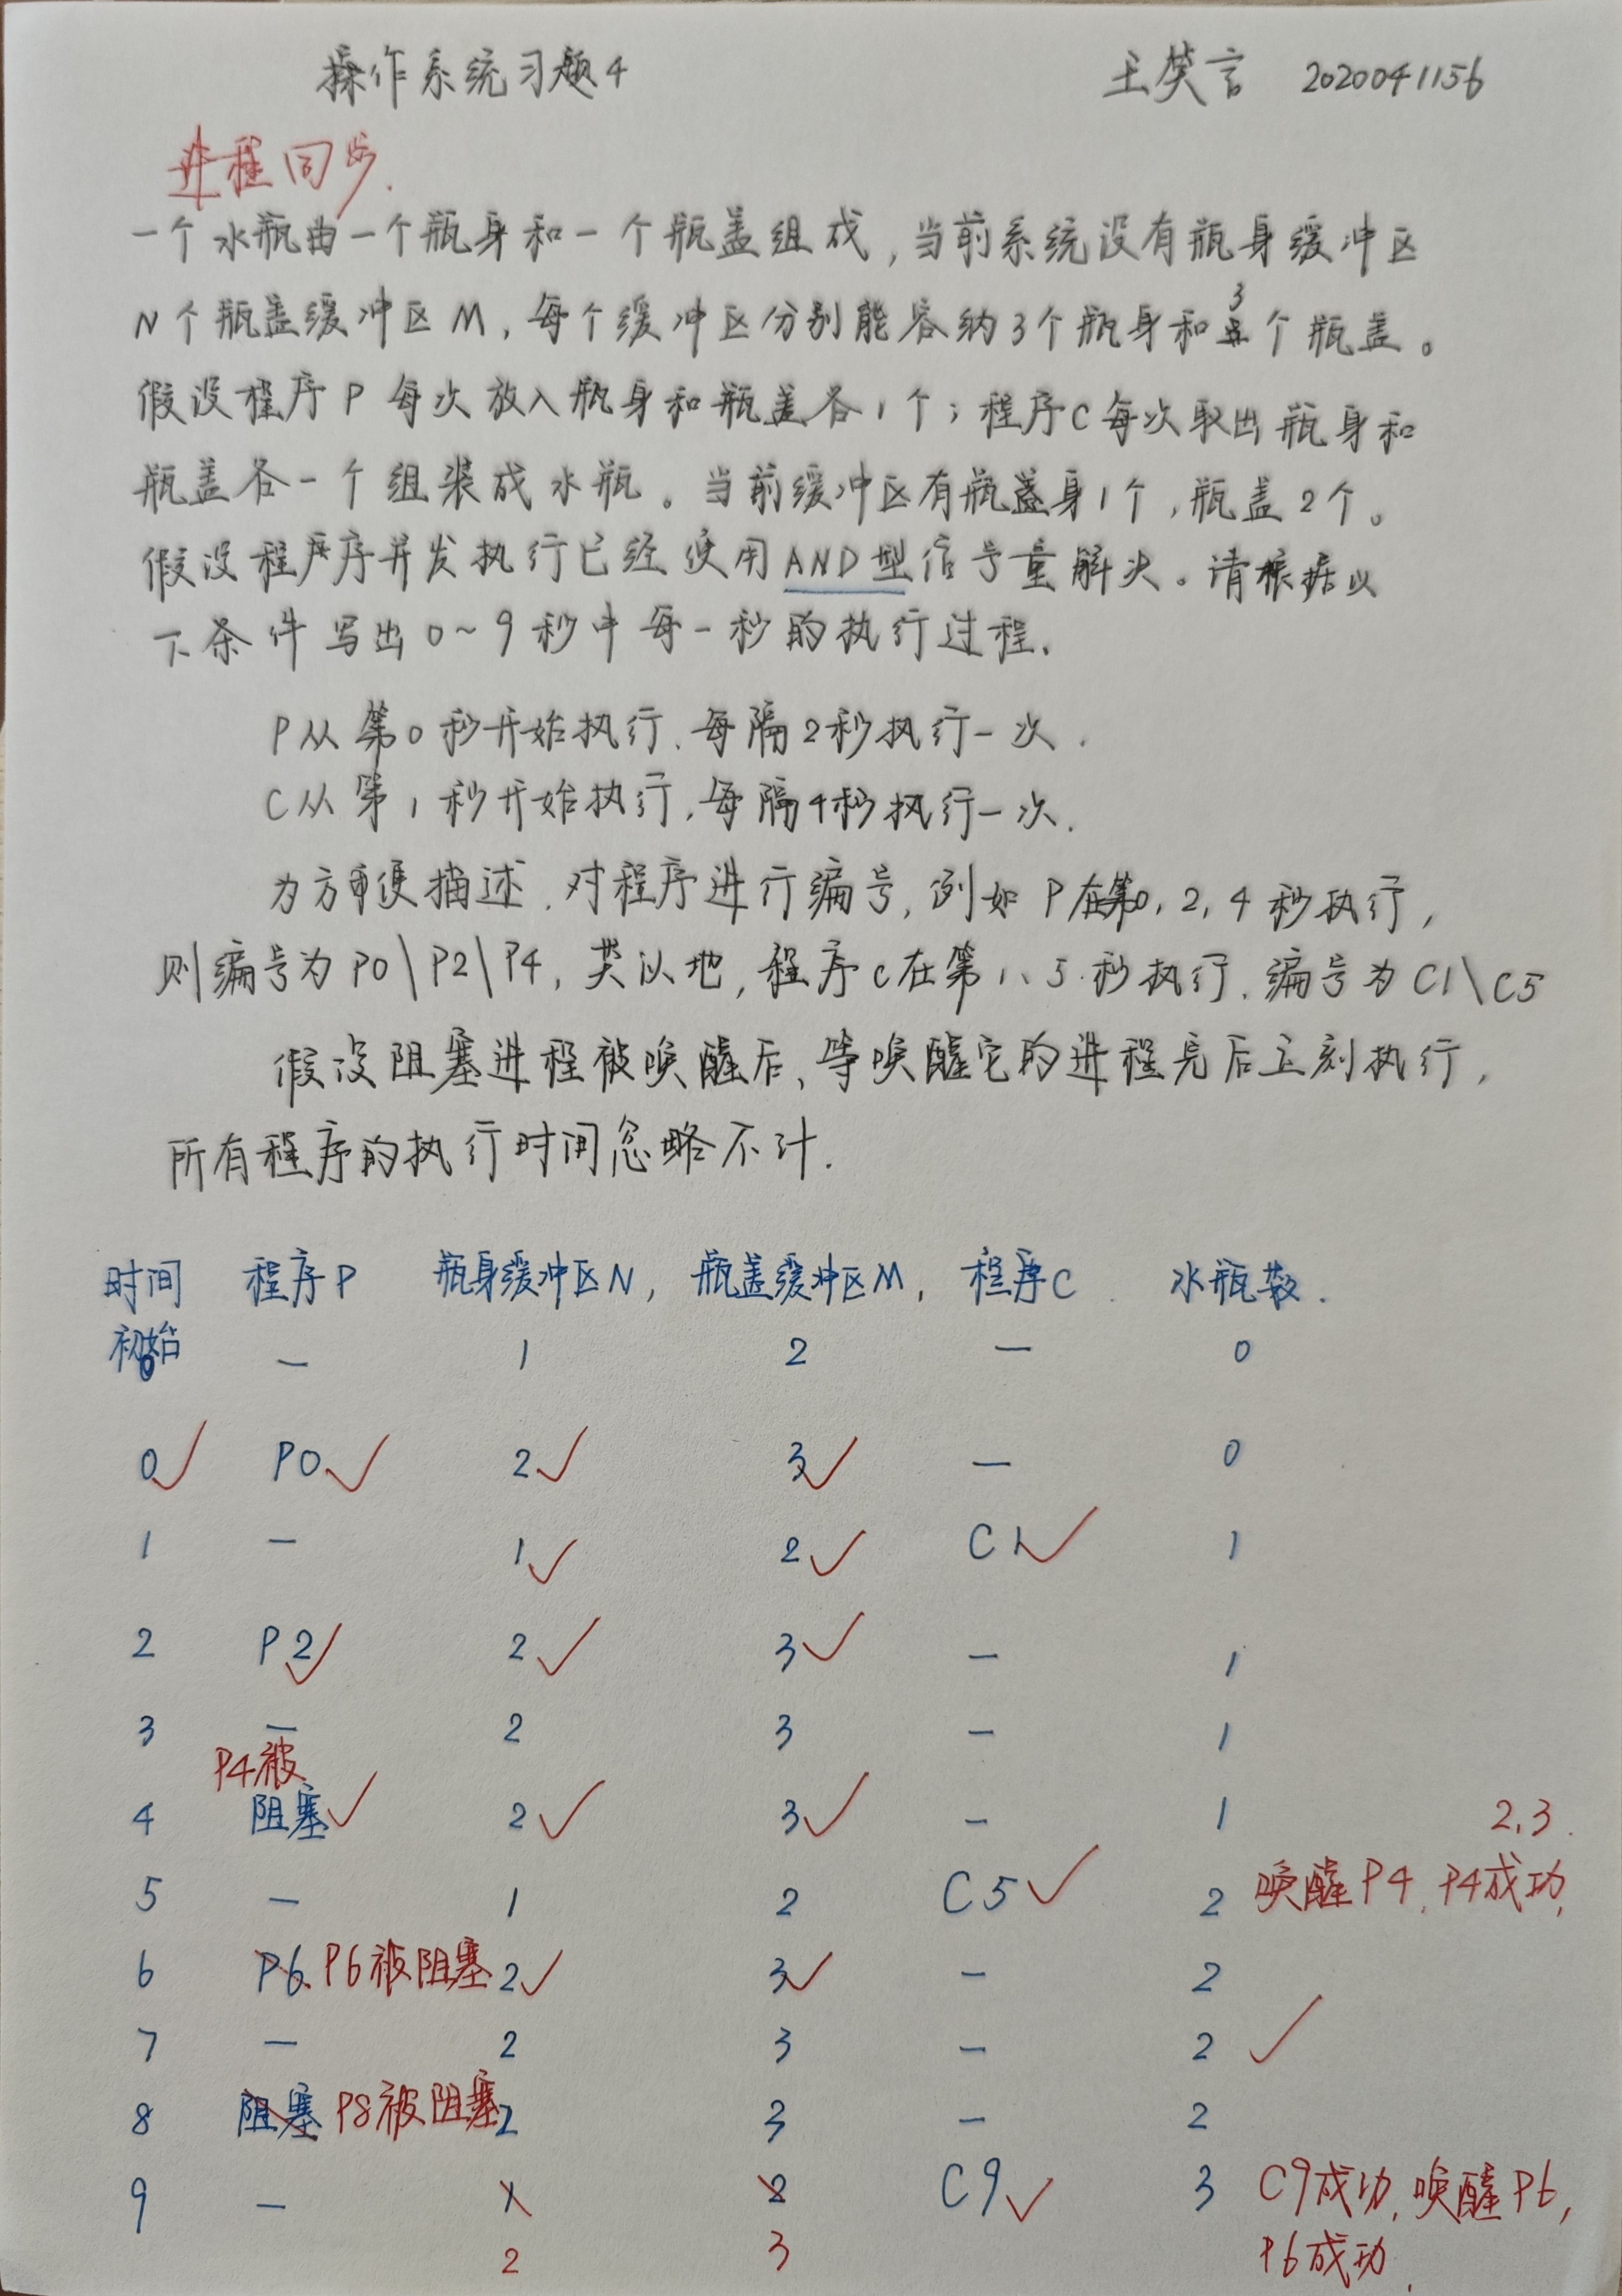 操作系统习题4 王笑言 2020041156
进程同步.
一个水瓶由一个瓶身和一个瓶盖组成,当前系统设有瓶身缓冲区
N个瓶盖缓冲区M,每个缓冲区分别能容纳3个瓶身和3个瓶盖。
假设程序P每次放入瓶身和瓶盖各1个;程序C每次取出瓶身和
瓶盖各一个组装成水瓶。当前缓冲区有瓶身1个,瓶盖2个。
假设程序并发执行已经使用AND型信号量解决。请根据以
下条件写出0~9秒中每一秒的执行过程.
P从第0秒开始执行.每隔2秒执行一次.
C从第1秒开始执行,每隔4秒执行一次.
为方便描述.对程序进行编号,例如P在第0,2,4秒执行,
则编号为P0\P2\P4,类似地,程序C在第1、5.秒执行.编号为C1\C5
假设阻塞进程被唤醒后、等唤醒它的进程完后立刻执行,
所有程序的执行时间忽略不计.
时间 程序P 瓶身缓冲区N, 瓶盖缓冲区M, 程序C. 水瓶数.
初始 — 1 2 — 0
0✓ P0✓ 2✓ 3✓ — 0
1 — 1✓ 2✓ C1✓ 1
2 P2✓ 2✓ 3✓ — 1
3 — 2 3 — 1
P4被
4 阻塞✓ 2✓ 3✓ — 1 2,3.
5 — 1 2 C5✓ 2 唤醒P4,P4成功,
6 P6.P6被阻塞 2✓ 3✓ — 2
7 — 2 3 — 2 ✓
8 阻塞 P8被阻塞 2 3 — 2
9 — 1 2 C9✓ 3 C9成功,唤醒P6,
2 3 P6成功.